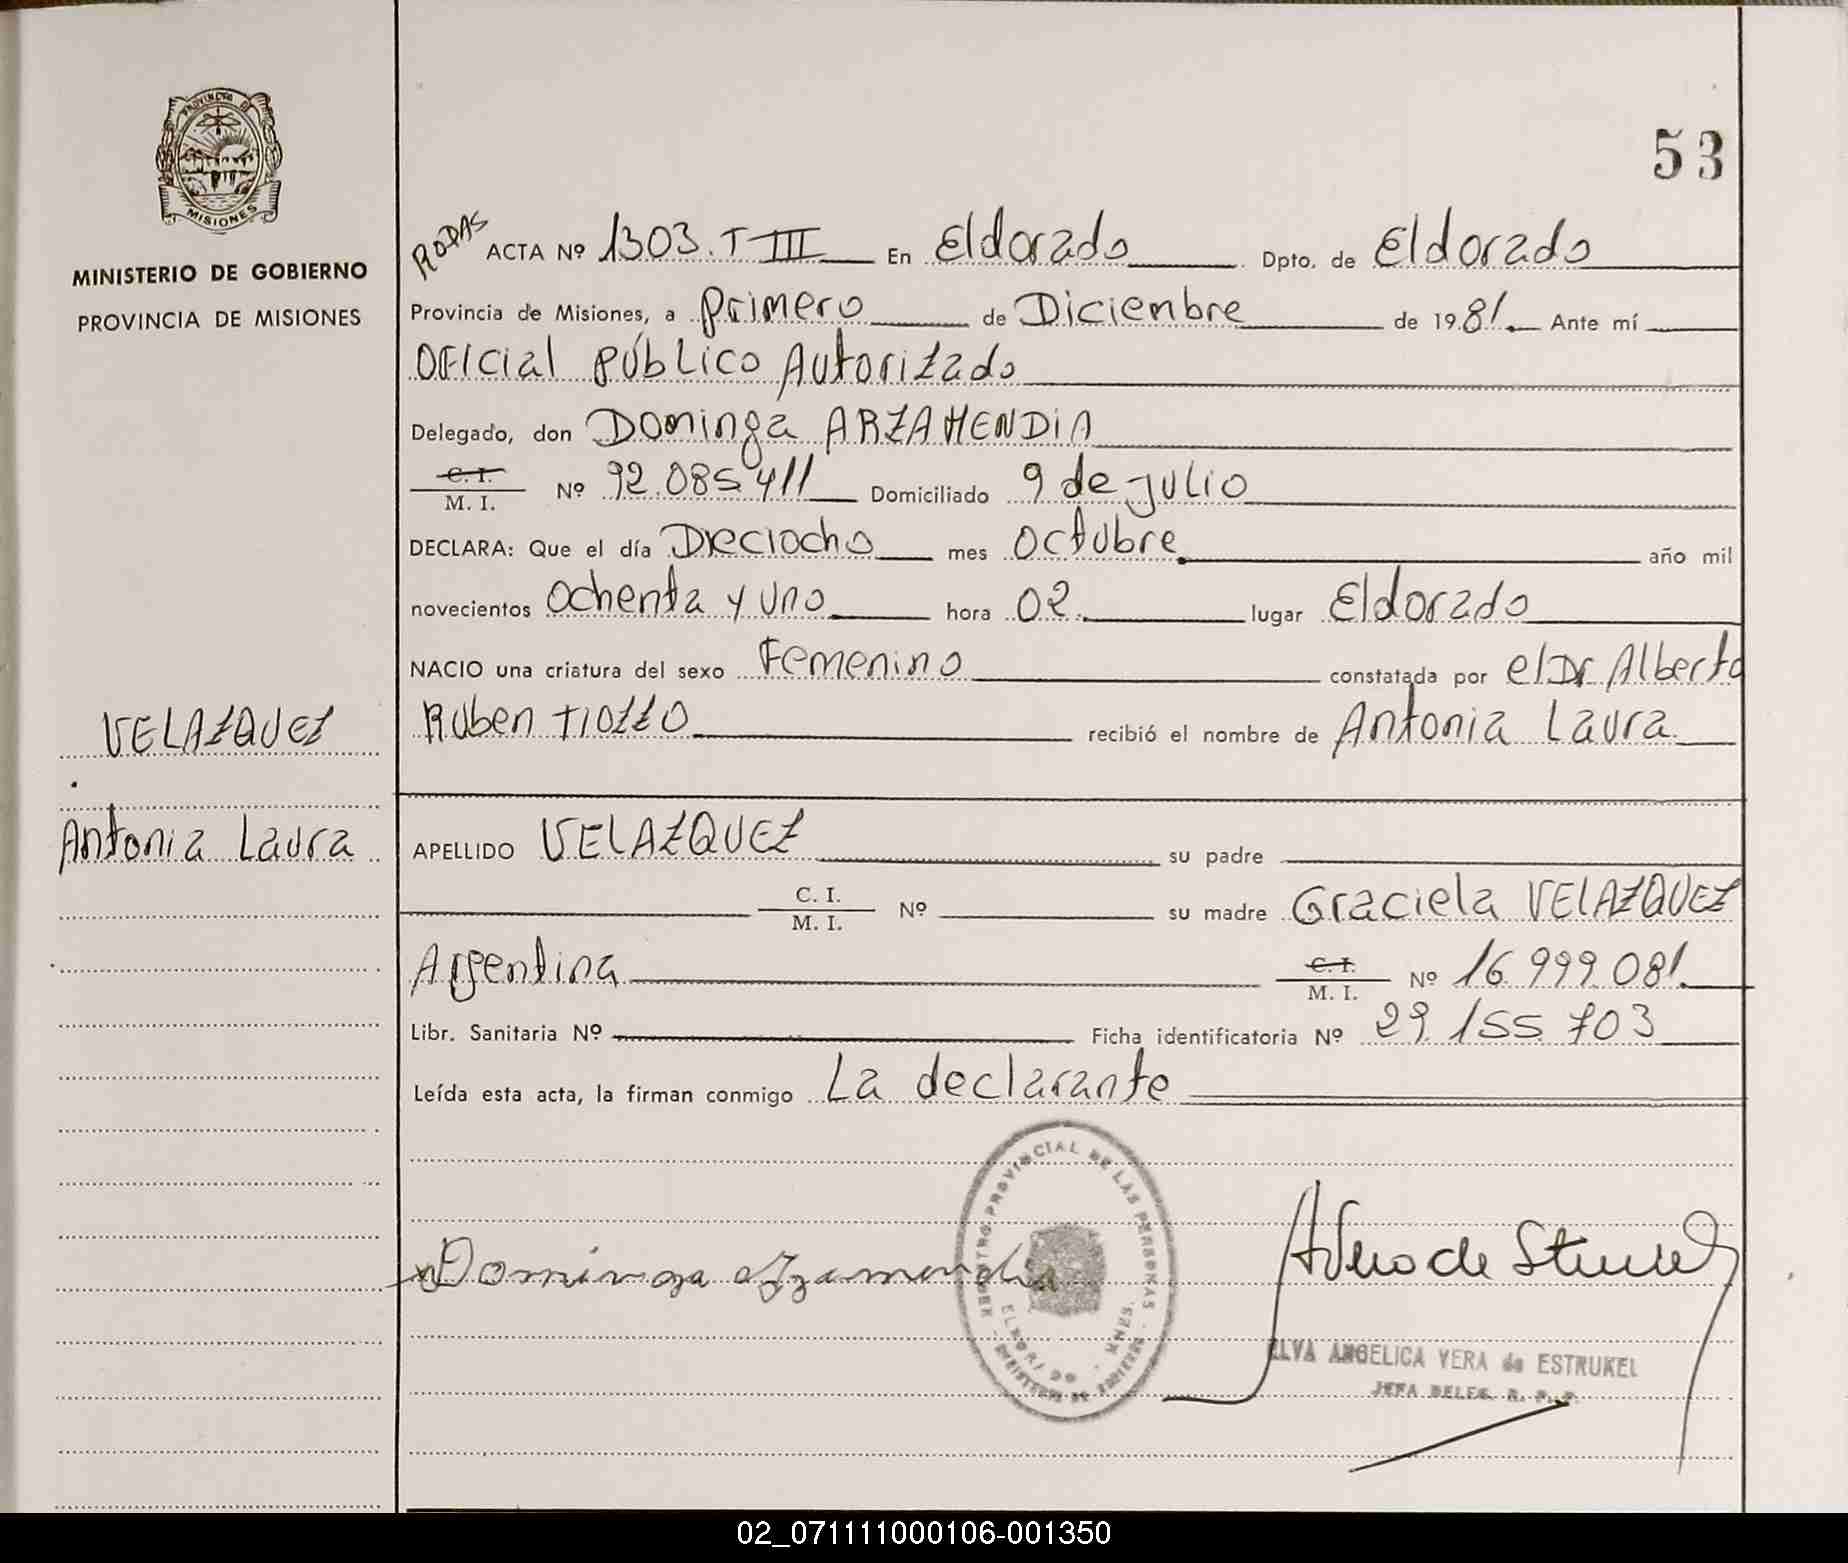 PROVINCIA DE
MISIONES
MINISTERIO DE GOBIERNO
PROVINCIA DE MISIONES
VELAZQUEZ
Antonia Laura
53
RODAS ACTA Nº 1303. T III En Eldorado Dpto. de Eldorado
Provincia de Misiones, a primero de Diciembre de 1981. Ante mí
Oficial Público Autorizado
Delegado, don Dominga ARZAMENDIA
C. I.
M. I. Nº 92.085411 Domiciliado 9 de julio
DECLARA: Que el día Dieciocho mes Octubre año mil
novecientos Ochenta y uno hora 02. lugar Eldorado
NACIO una criatura del sexo Femenino constatada por el Dr Alberto
Ruben TIOZZO recibió el nombre de Antonia Laura.
APELLIDO VELAZQUEZ su padre
C. I.
M. I. Nº su madre Graciela VELAZQUEZ
Argentina C. I.
M. I. Nº 16.999.081.
Libr. Sanitaria Nº Ficha identificatoria Nº 29.155.703
Leída esta acta, la firman conmigo La declarante
REGISTRO PROVINCIAL DE LAS PERSONAS
ELDORADO - MNES.
MINISTERIO DE GOBIERNO
Dominga Arzamendia
AVera de Estrukel
ELVA ANGELICA VERA de ESTRUKEL
JEFA DELEG. R. P. P.
02_071111000106-001350